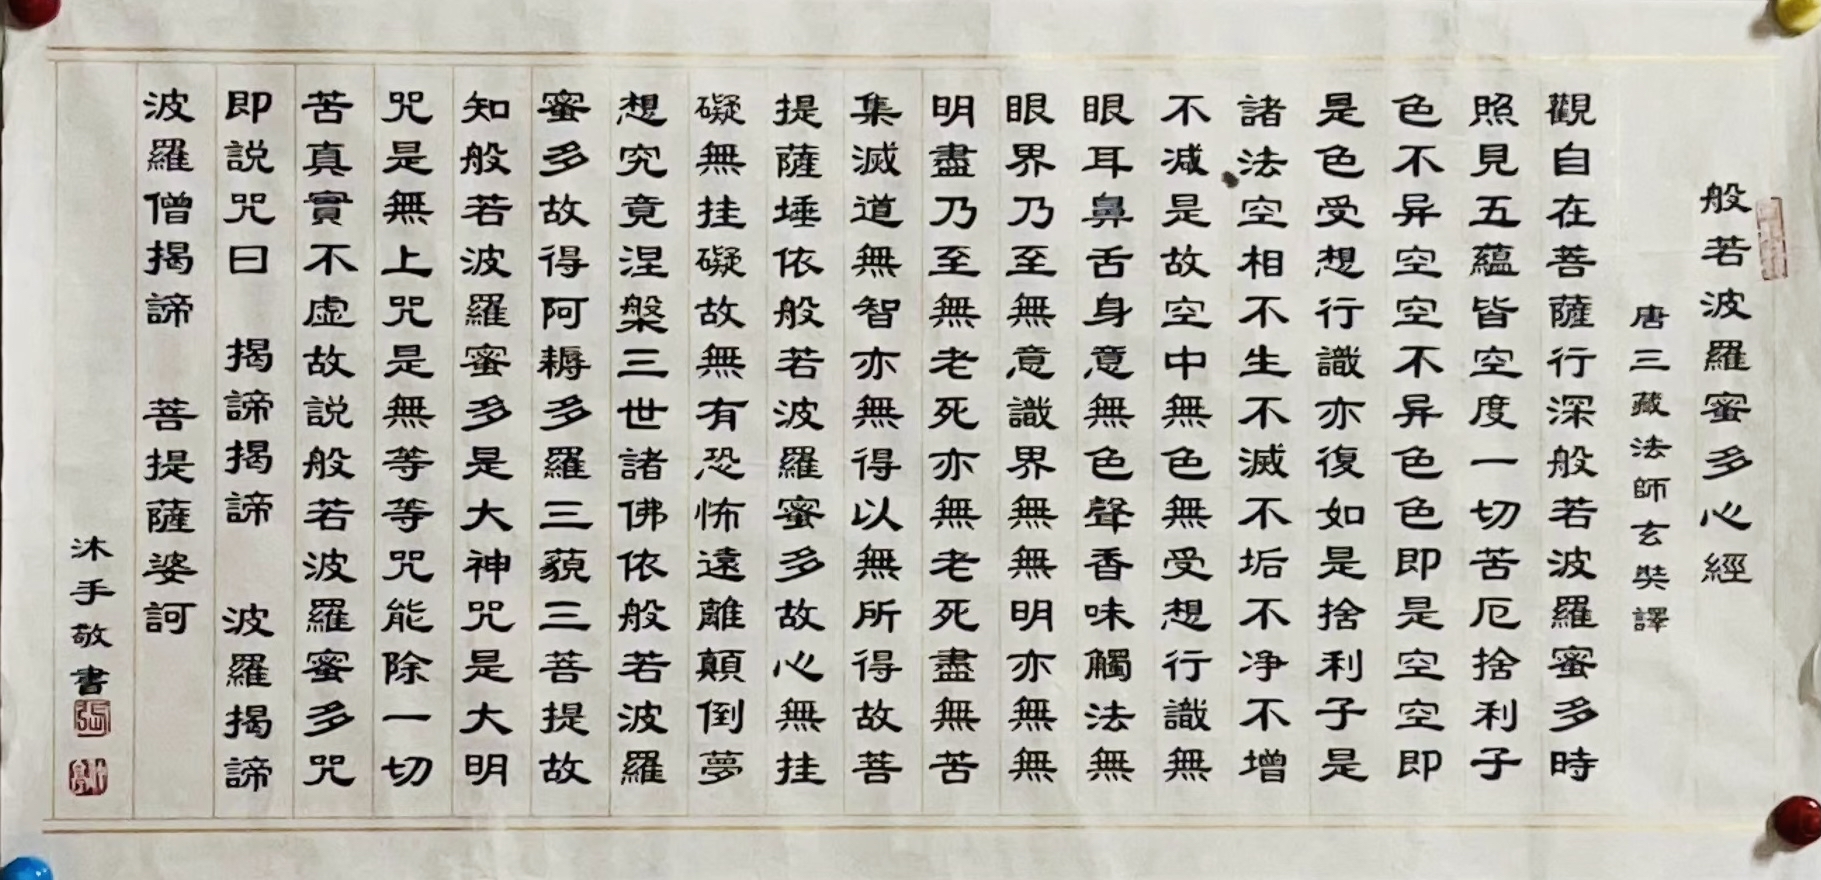 般若波羅蜜多心經
唐三藏法師玄奘譯
觀自在菩薩行深般若波羅蜜多時
照見五蘊皆空度一切苦厄捨利子
色不异空空不异色色即是空空即
是色受想行識亦復如是捨利子是
諸法空相不生不滅不垢不净不增
不减是故空中無色無受想行識無
眼耳鼻舌身意無色聲香味觸法無
眼界乃至無意識界無無明亦無無
明盡乃至無老死亦無老死盡無苦
集滅道無智亦無得以無所得故菩
提薩埵依般若波羅蜜多故心無挂
礙無挂礙故無有恐怖遠離顛倒夢
想究竟涅槃三世諸佛依般若波羅
蜜多故得阿耨多羅三藐三菩提故
知般若波羅蜜多是大神咒是大明
咒是無上咒是無等等咒能除一切
苦真實不虛故説般若波羅蜜多咒
即説咒曰 揭諦揭諦 波羅揭諦
波羅僧揭諦 菩提薩婆訶
沐手敬書